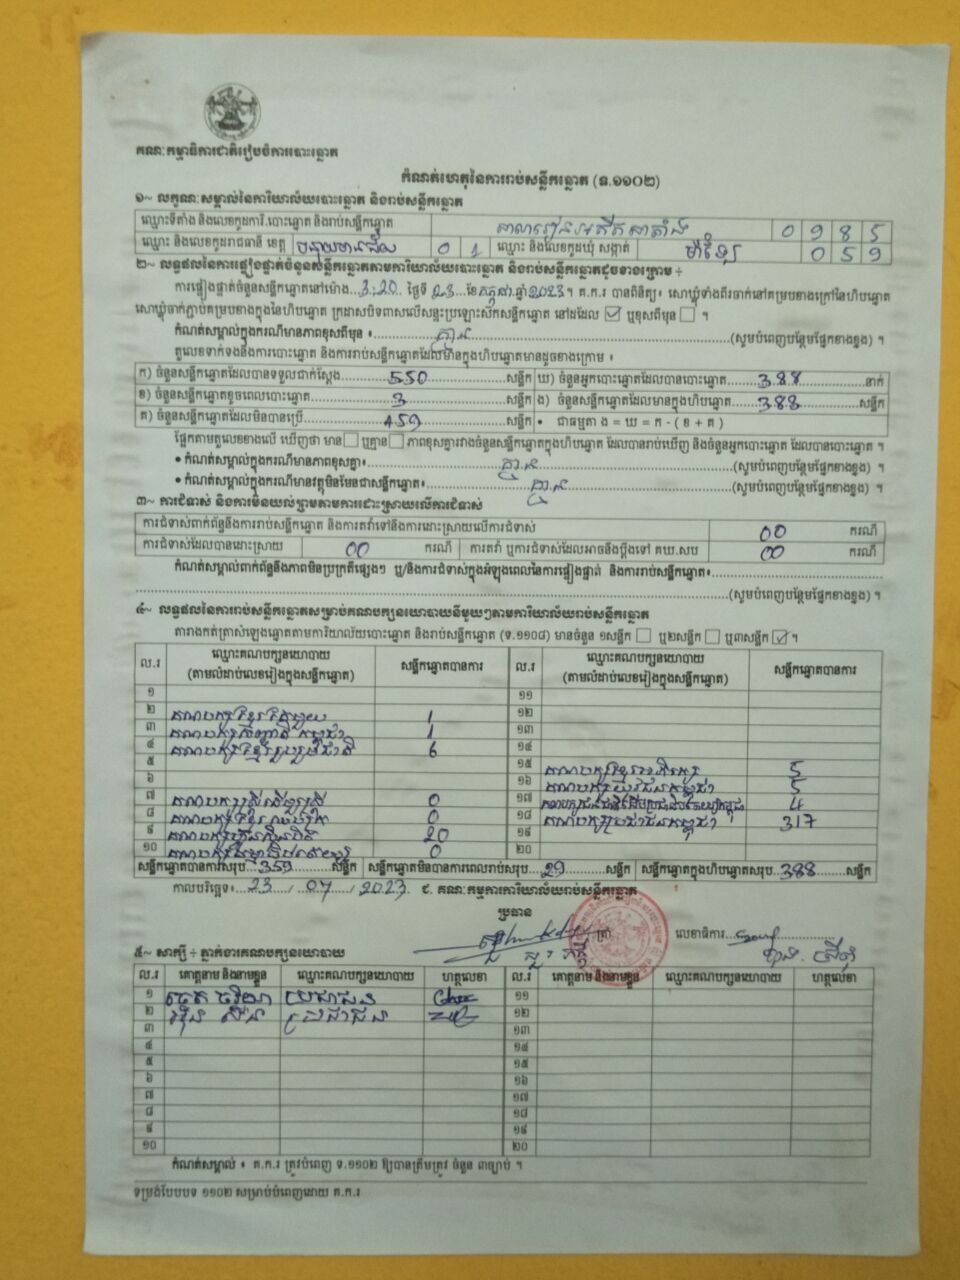 គណៈកម្មាធិការជាតិរៀបចំការបោះឆ្នោត
កំណត់ហេតុនៃការរាប់សន្លឹកឆ្នោត (ទ.១១០២)
១~ លក្ខណៈសម្គាល់នៃការិយាល័យបោះឆ្នោត និងរាប់សន្លឹកឆ្នោត
ឈ្មោះទីតាំង និងលេខកូដការិ.បោះឆ្នោត និងរាប់សន្លឹកឆ្នោត 0985
ឈ្មោះ និងលេខកូដរាជធានី ខេត្ត បន្ទាយមានជ័យ 01 ឈ្មោះ និងលេខកូដឃុំ សង្កាត់ 059
២~ លទ្ធផលនៃការផ្ទៀងផ្ទាត់ចំនួនសន្លឹកឆ្នោតតាមការិយាល័យបោះឆ្នោត និងរាប់សន្លឹកឆ្នោតដូចខាងក្រោម ÷
ការផ្ទៀងផ្ទាត់ចំនួនសន្លឹកឆ្នោតនៅម៉ោង...3:20 ថ្ងៃទី 23 ខែ កក្កដា ឆ្នាំ 2023។ គ.ក.រ បានពិនិត្យ៖ សោឃ្លុំទាំងពីរចាក់នៅគម្របខាងក្រៅនៃហិបឆ្នោត
សោឃ្លុំចាក់ភ្ជាប់គម្របខាងក្នុងនៃហិបឆ្នោត ក្រដាសបិទពាសលើសន្ទះប្រឡោះស៊កសន្លឹកឆ្នោត នៅដដែល ☑ ឬខុសពីមុន ☐ ។
កំណត់សម្គាល់ក្នុងករណីមានភាពខុសពីមុន ៖ គ្មាន (សូមបំពេញបន្ថែមផ្នែកខាងខ្នង) ។
តួលេខទាក់ទងនឹងការបោះឆ្នោត និងការរាប់សន្លឹកឆ្នោតដែលមានក្នុងហិបឆ្នោតមានដូចខាងក្រោម ៖
ក) ចំនួនសន្លឹកឆ្នោតដែលបានទទួលជាក់ស្តែង 550 សន្លឹក ឃ) ចំនួនអ្នកបោះឆ្នោតដែលបានបោះឆ្នោត 388 នាក់
ខ) ចំនួនសន្លឹកឆ្នោតខូចពេលបោះឆ្នោត 3 សន្លឹក ង) ចំនួនសន្លឹកឆ្នោតដែលមានក្នុងហិបឆ្នោត 388 សន្លឹក
គ) ចំនួនសន្លឹកឆ្នោតដែលមិនបានប្រើ 159 សន្លឹក • ជាធម្មតា ង = ឃ = ក - ( ខ + គ )
ផ្អែកតាមតួលេខខាងលើ ឃើញថា មាន ☐ ឬគ្មាន ☐ ភាពខុសគ្នារវាងចំនួនសន្លឹកឆ្នោតក្នុងហិបឆ្នោត ដែលបានរាប់ឃើញ និងចំនួនអ្នកបោះឆ្នោត ដែលបានបោះឆ្នោត ។
• កំណត់សម្គាល់ក្នុងករណីមានភាពខុសគ្នា៖ គ្មាន (សូមបំពេញបន្ថែមផ្នែកខាងខ្នង) ។
• កំណត់សម្គាល់ក្នុងករណីមានវត្ថុមិនមែនជាសន្លឹកឆ្នោត៖ គ្មាន (សូមបំពេញបន្ថែមផ្នែកខាងខ្នង) ។
៣~ ការជំទាស់ និងការមិនយល់ព្រមតាមការដោះស្រាយលើការជំទាស់
ការជំទាស់ពាក់ព័ន្ធនឹងការរាប់សន្លឹកឆ្នោត និងការតវ៉ាទៅនឹងការដោះស្រាយលើការជំទាស់ 00 ករណី
ការជំទាស់ដែលបានដោះស្រាយ 00 ករណី ការតវ៉ា ឬការជំទាស់ដែលអាចនឹងប្តឹងទៅ គឃ.សប 00 ករណី
កំណត់សម្គាល់ពាក់ព័ន្ធនឹងភាពមិនប្រក្រតីផ្សេងៗ ឬ/និងការជំទាស់ក្នុងអំឡុងពេលនៃការផ្ទៀងផ្ទាត់ និងការរាប់សន្លឹកឆ្នោត៖
(សូមបំពេញបន្ថែមផ្នែកខាងខ្នង) ។
៤~ លទ្ធផលនៃការរាប់សន្លឹកឆ្នោតសម្រាប់គណបក្សនយោបាយនីមួយៗតាមការិយាល័យរាប់សន្លឹកឆ្នោត
តារាងកត់ត្រាសំឡេងឆ្នោតតាមការិយាល័យបោះឆ្នោត និងរាប់សន្លឹកឆ្នោត (ទ.១១០៨) មានចំនួន ១សន្លឹក ☐ ឬ២សន្លឹក ☐ ឬ៣សន្លឹក ☑ ។
ល.រ ឈ្មោះគណបក្សនយោបាយ (តាមលំដាប់លេខរៀងក្នុងសន្លឹកឆ្នោត) សន្លឹកឆ្នោតបានការ ល.រ ឈ្មោះគណបក្សនយោបាយ (តាមលំដាប់លេខរៀងក្នុងសន្លឹកឆ្នោត) សន្លឹកឆ្នោតបានការ
១ ១១
២ គណបក្សខ្មែរតែមួយ 1 ១២
៣ 1 ១៣
៤ គណបក្សខ្មែររួបរួមជាតិ 6 ១៤
៥ ១៥ គណបក្សខ្មែរអភិរក្ស 5
៦ ១៦ គណបក្សយុវជនកម្ពុជា 5
៧ គណបក្សស្ត្រីដើម្បីស្ត្រី 0 ១៧ 4
៨ 0 ១៨ គណបក្សប្រជាជនកម្ពុជា 317
៩ គណបក្សហ៊្វុនស៊ិនប៉ិច 20 ១៩
១០ 0 ២០
សន្លឹកឆ្នោតបានការសរុប 359 សន្លឹក សន្លឹកឆ្នោតមិនបានការពេលរាប់សរុប 29 សន្លឹក សន្លឹកឆ្នោតក្នុងហិបឆ្នោតសរុប 388 សន្លឹក
កាលបរិច្ឆេទ៖ 23/07/2023 ជ. គណៈកម្មការការិយាល័យរាប់សន្លឹកឆ្នោត
ប្រធាន
ត្រា លេខាធិការ
៥~ សាក្សី ÷ ភ្នាក់ងារគណបក្សនយោបាយ
ល.រ គោត្តនាម និងនាមខ្លួន ឈ្មោះគណបក្សនយោបាយ ហត្ថលេខា ល.រ គោត្តនាម និងនាមខ្លួន ឈ្មោះគណបក្សនយោបាយ ហត្ថលេខា
១ ប្រជាជន ១១
២ ប្រជាជន ១២
៣ ១៣
៤ ១៤
៥ ១៥
៦ ១៦
៧ ១៧
៨ ១៨
៩ ១៩
១០ ២០
កំណត់សម្គាល់ ៖ គ.ក.រ ត្រូវបំពេញ ទ.១១០២ ឱ្យបានត្រឹមត្រូវ ចំនួន ៣ច្បាប់ ។
ទម្រង់បែបបទ ១១០២ សម្រាប់បំពេញដោយ គ.ក.រ